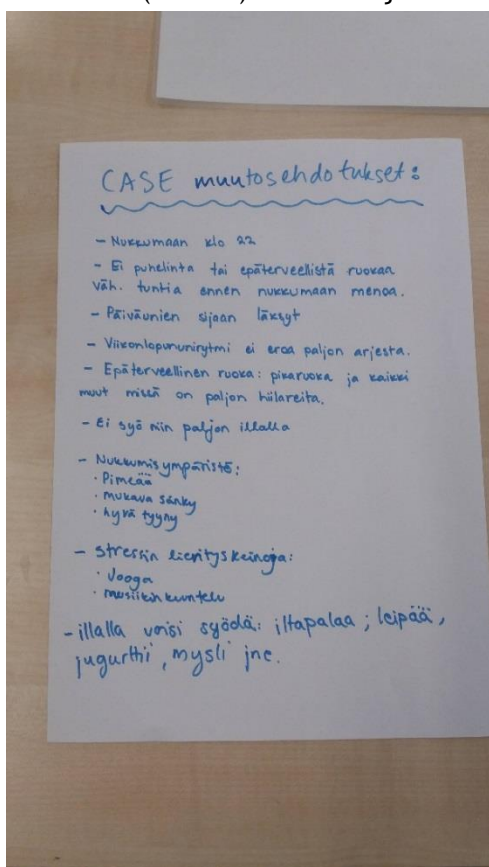 CASE muutosehdotukset:
- Nukkumaan klo 22
- Ei puhelinta tai epäterveellistä ruokaa
väh. tuntia ennen nukkumaan menoa.
- Päiväunien sijaan läksyt
- Viikonlopununirytmi ei eroa paljon arjesta.
- Epäterveellinen ruoka: pikaruoka ja kaikki
muut missä on paljon hiilareita.
- Ei syö niin paljon illalla
- Nukkumisympäristö:
· Pimeää
· mukava sänky
· hyvä tyyny
- stressin lievityskeinoja:
· Jooga
· musiikin kuuntelu
- illalla voisi syödä: iltapalaa; leipää,
jugurtti, mysli jne.